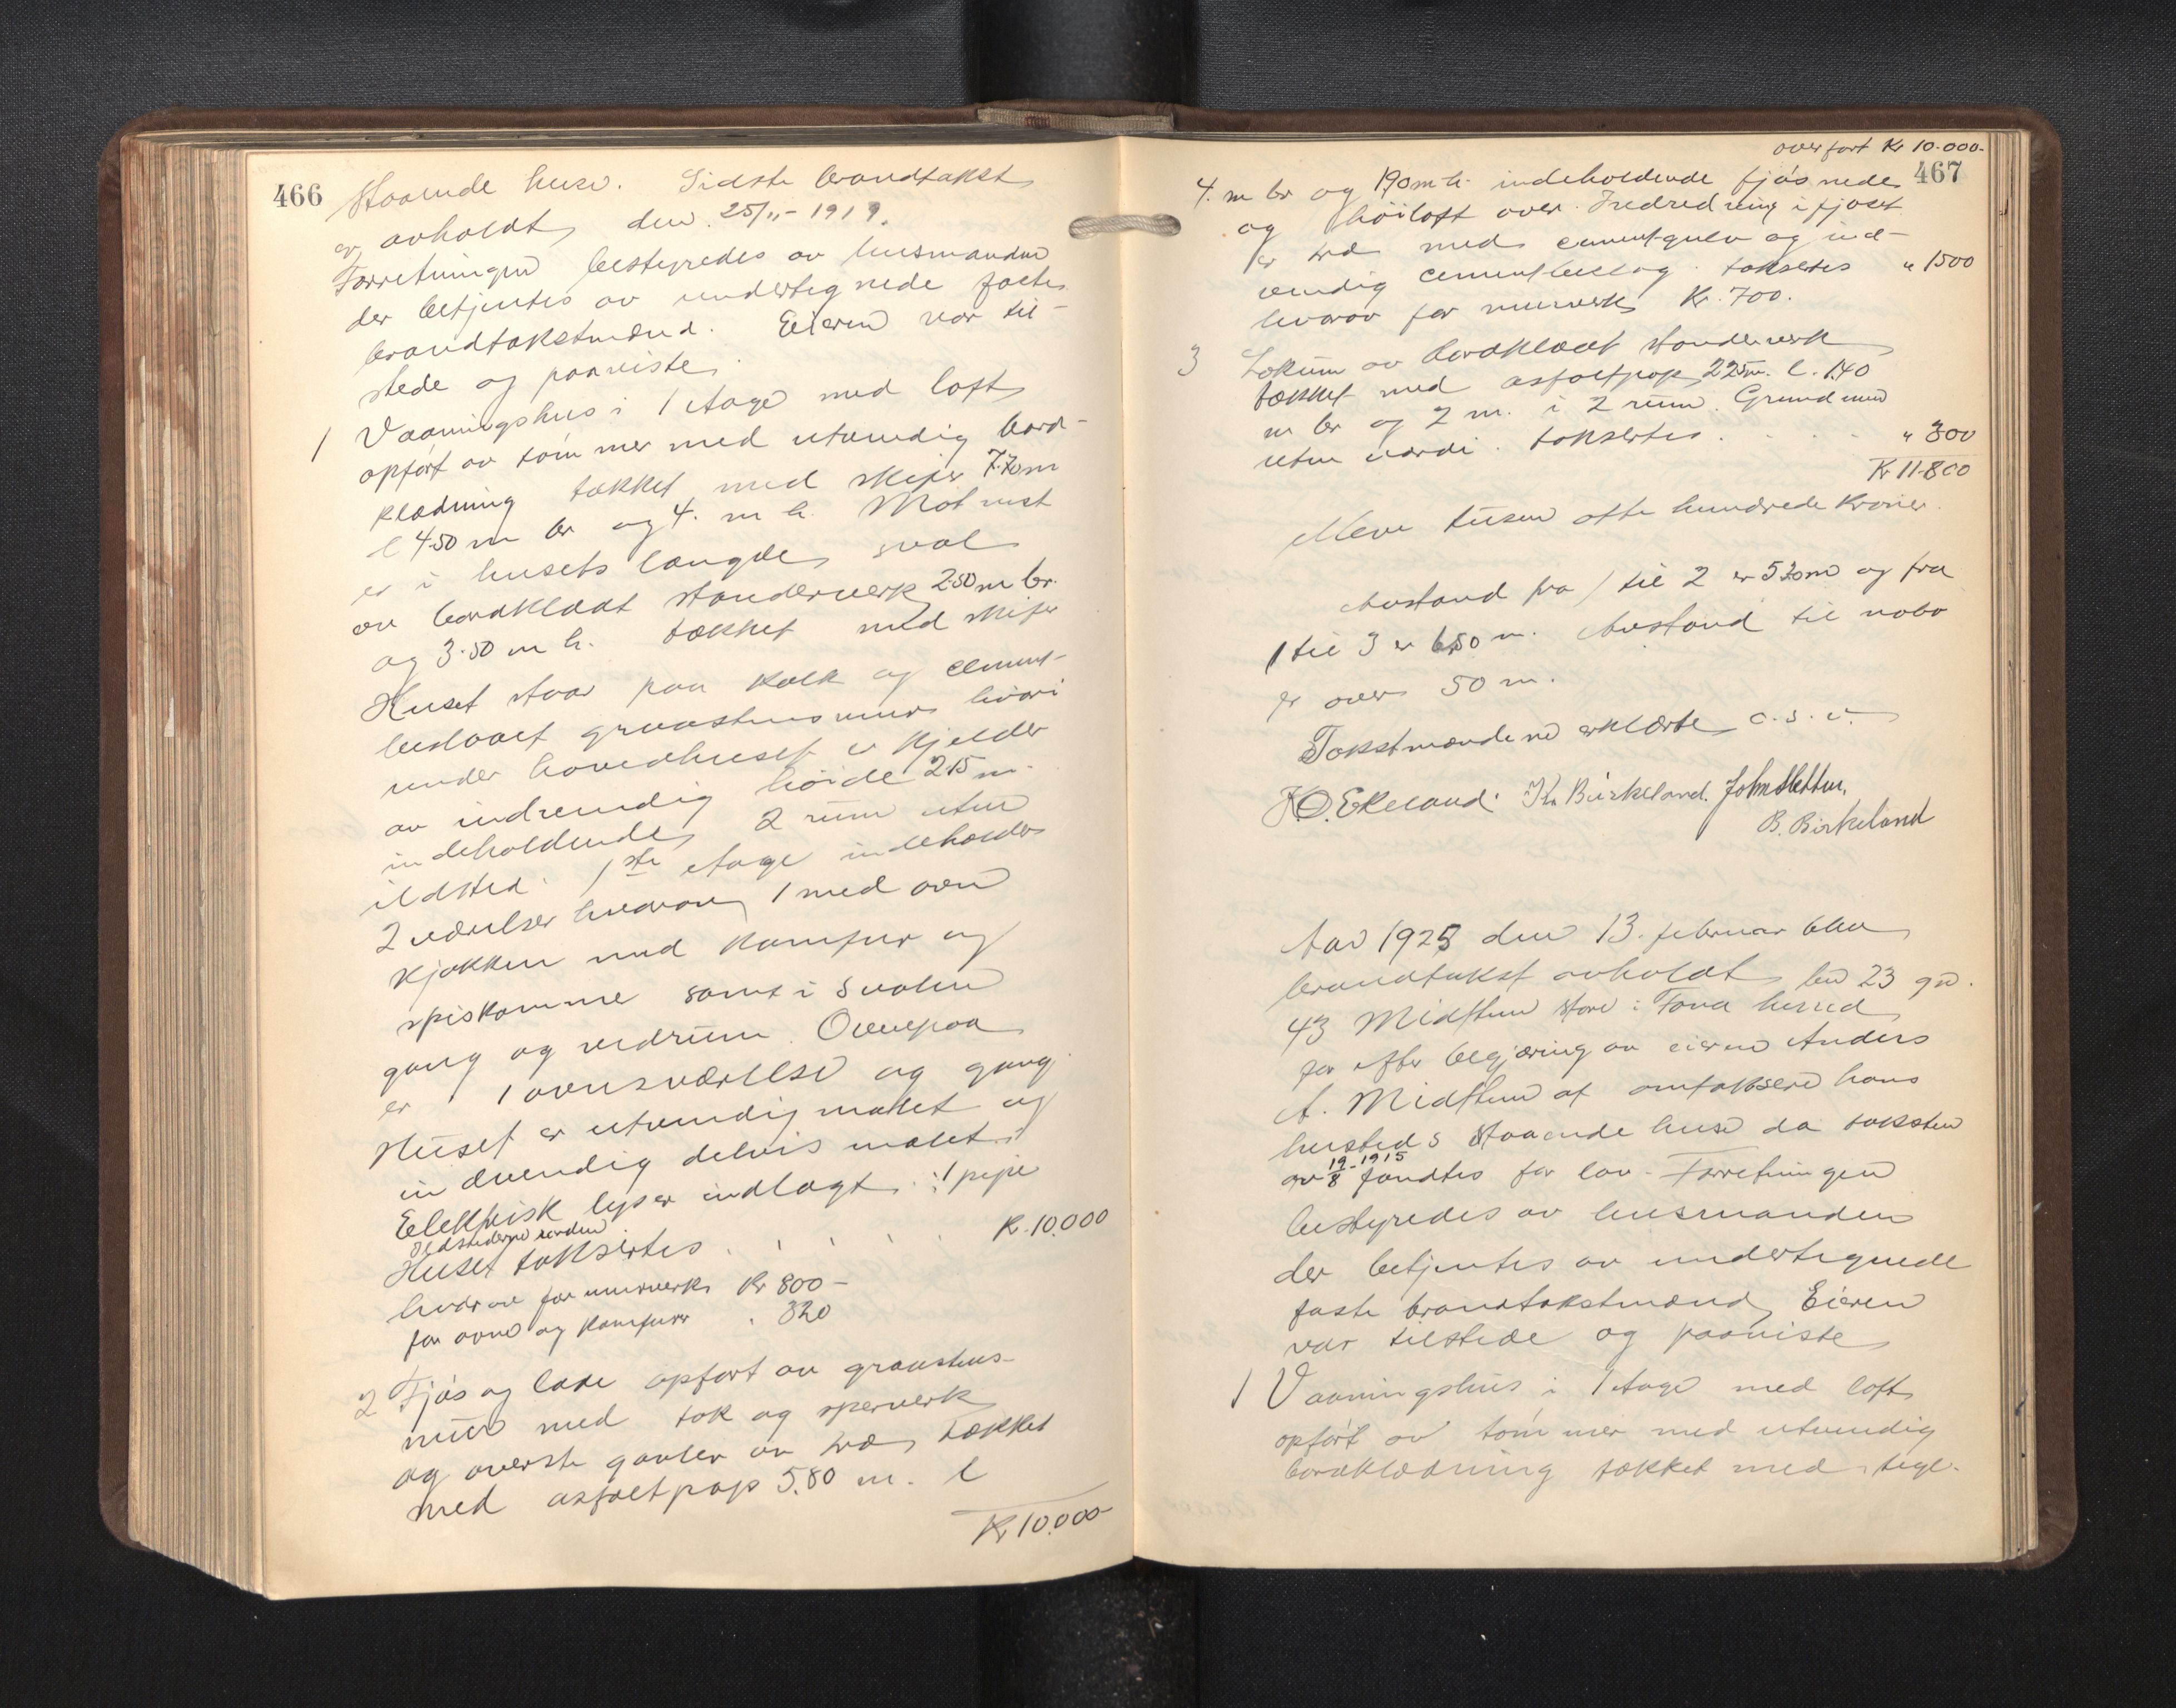 466
staaende huse. Sidste brandtakst
er avholdt den 25/11-1919.
Forretningen bestyredes av lensmanden
der betjentes av undertegnede faste
brandtakstmænd. Eieren var til-
stede og paaviste
1 Vaaningshus i 1 etage med loft
opført av tømmer med utvendig bord-
klædning tækket med skifer 7.70 m
l 4.50 m br og 4. m h. Mot vest
er i husets længde sval
av bordklædt standerverk 2.50 m br.
og 3.50 m h. tækket med skifer
Huset staar paa kalk og cement-
beslaaet graastensmur hvori
under hovedhuset er kjelder
av indvendig høide 2.15 m.
indeholdende 2 rum uten
ildsted. 1ste etage indeholder
2 værelser hvorav 1 med ovn
kjøkken med komfur og
spiskammer samt i svalen
gang og vedrum. Ovenpaa
er 1 ovnsværelse og gang
Huset er utvendig malet og
indvendig delvis malet
Elektrisk lys er indlagt. 1 pipe
Ildstederne i orden
Huset takseres . . . . . Kr. 10.000
hvorav for murverk Kr 800-
for ovne og komfur " 320
2 Fjøs og lade opført av graastens-
mur med tak og sperverk
og øverste gavler av træ, tækket
med asfaltpap 5.80 m. l
Kr 10.000
overført Kr 10.000-
467
4. m br og 1.90 m h. indeholdende fjøs nede
og høiloft over. Indredning i fjøset
er træ med cementgulv og ind-
vendig cementbeslag. takseres " 1500
hvorav for murverk Kr. 700.
3 Lokum av bordklædt standerverk
tækket med asfaltpap 2.25 m. l. 1.40
m br og 2 m. i 2 rum. Grundmur
uten værdi. takseres . . . . " 300
Kr 11.800
Elleve tusen otte hundrede Kroner.
Avstand fra 1 til 2 er 5.20 m og fra
1 til 3 er 6.50 m. Avstand til nabo
er over 50 m.
Takstmændene erklærte o.s.v.
K.O. Ekeland. Kr. Birkeland. John Sletten.
B. Birkeland
Aar 1925 den 13. februar blev
brandtakst avholdt br 23 gn.
43 Midttun store i Fana herred
for efter begjæring av eieren Anders
A. Midttun at omtaksere hans
hersteds staaende huse da taksten
av 19/8-1915 fandtes for lav. Forretningen
bestyredes av lensmanden
der betjentes av undertegnede
faste brandtakstmænd. Eieren
var tilstede og paaviste
1 Vaaningshus i 1 etage med loft
opført av tømmer med utvendig
bordklædning tækket med tegl-